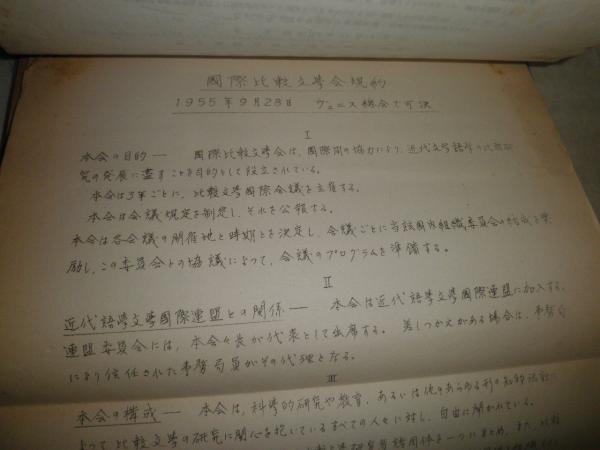 國際比較文學会規約
1955年9月28日 ヴェニス総会で可決
I
本会の目的 ― 國際比較文學会は、國際間の協力により、近代文學語學の比較研
究の発展に盡すことを目的として設立されている。
本会は3年ごとに、比較文學國際会議を主催する。
本会は会議規定を制定し、それを公報する。
本会は各会議の開催地と時期とを決定し、会議ごとに当該國内組織委員会の結成を奨
励し、この委員会との協議によって、会議のプログラムを準備する。
II
近代語學文學國際連盟との関係 ― 本会は近代語學文學國際連盟に加入する。
連盟委員会には、本会々長が代表として出席する。差しつかえがある場合は、事務局
により信任された事務局員がその代理となる。
III
本会の構成 ― 本会は、科學的研究や教育、あるいは他のあらゆる形の知的活動に
よって比較文學の研究に関心を抱いているすべての人々に対し、自由に開かれている。